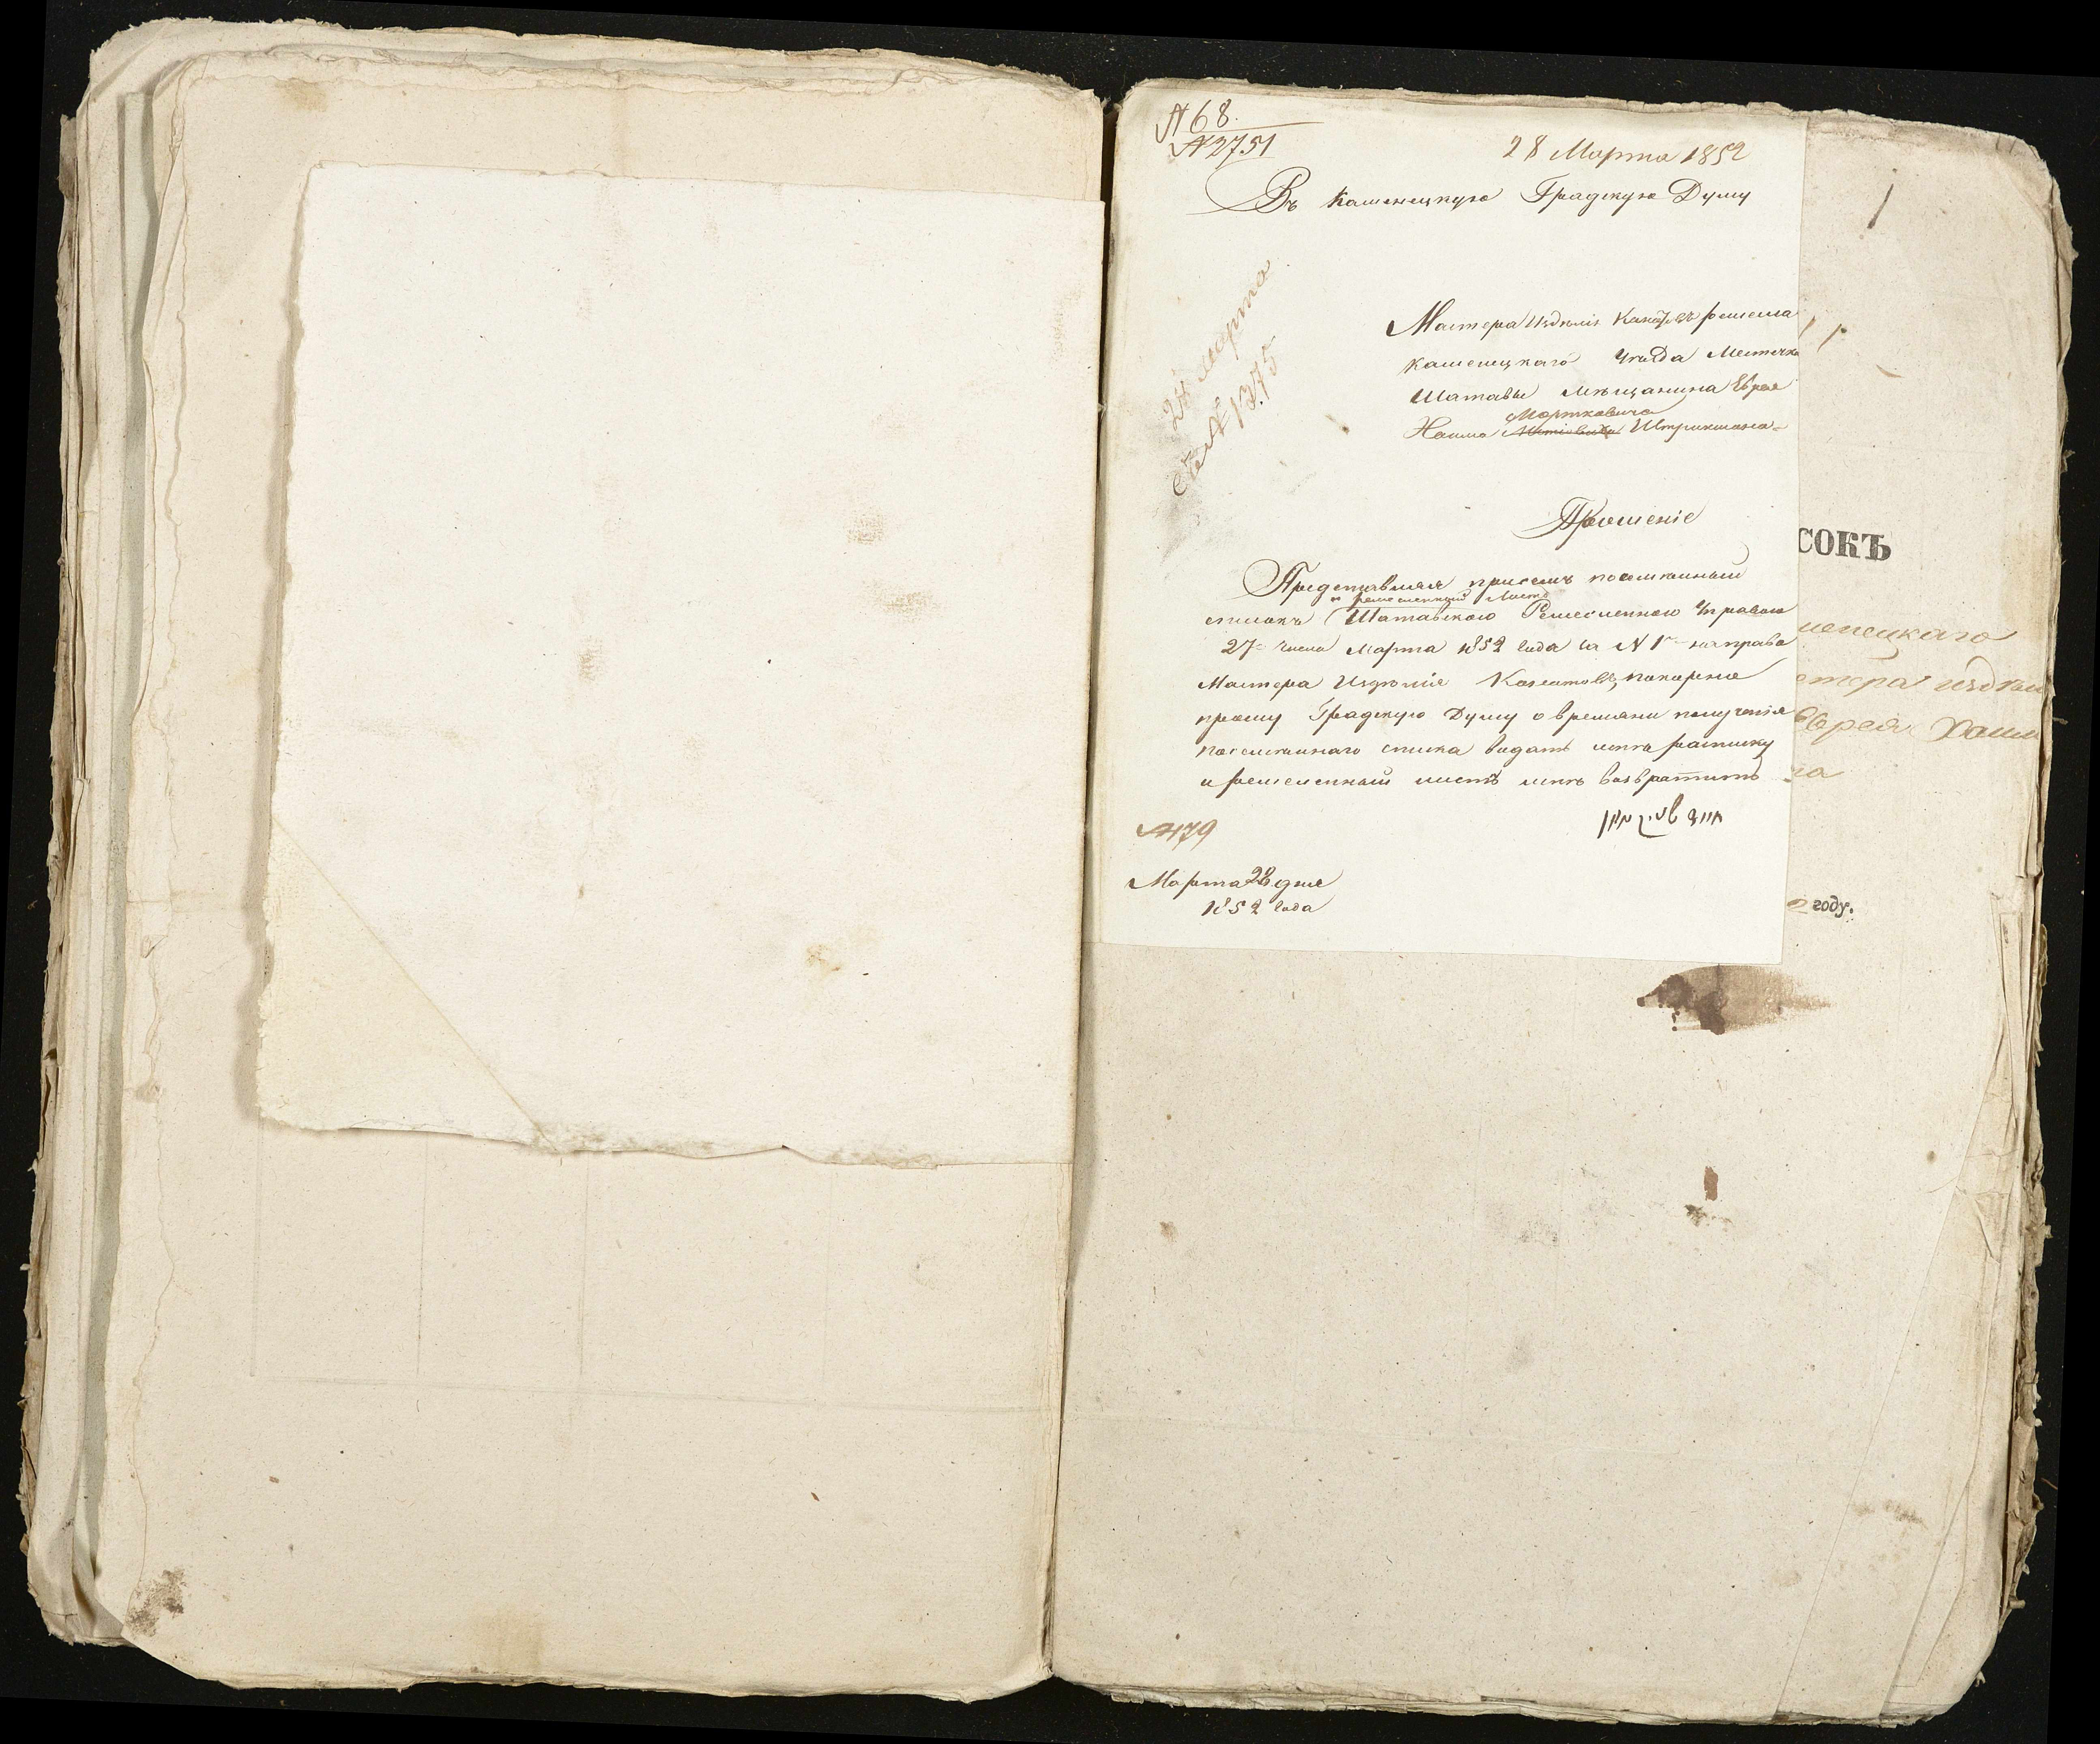 № 68.
№ 2751
28 Марта 1852
Въ Каменецкую Градскую Думу
24 марта
№ 1375
Мастера Издѣлія Канатовъ ремесла
Каменецкаго Уѣзда Местечка
Шатавы Мѣщанина Еврея
Мортковича
Хаима Штрикмана
Прошеніе
Представляя присемъ посемейный
и ремесленный Листъ
списокъ Шатавскою Ремесленною Управою
27 числа Марта 1852 года за № 1 на право
Мастера Издѣлія Канатовъ, покорно
прошу Градскую Думу о времяни полученія
посемейнаго списка видать мнѣ расписку
и ремесленный листъ мнѣ возвратить
№ 479
Марта 28 дня
1852 года
1
СОКЪ
менецкаго
стера издѣл
Еврея Хаим
на
2 году.